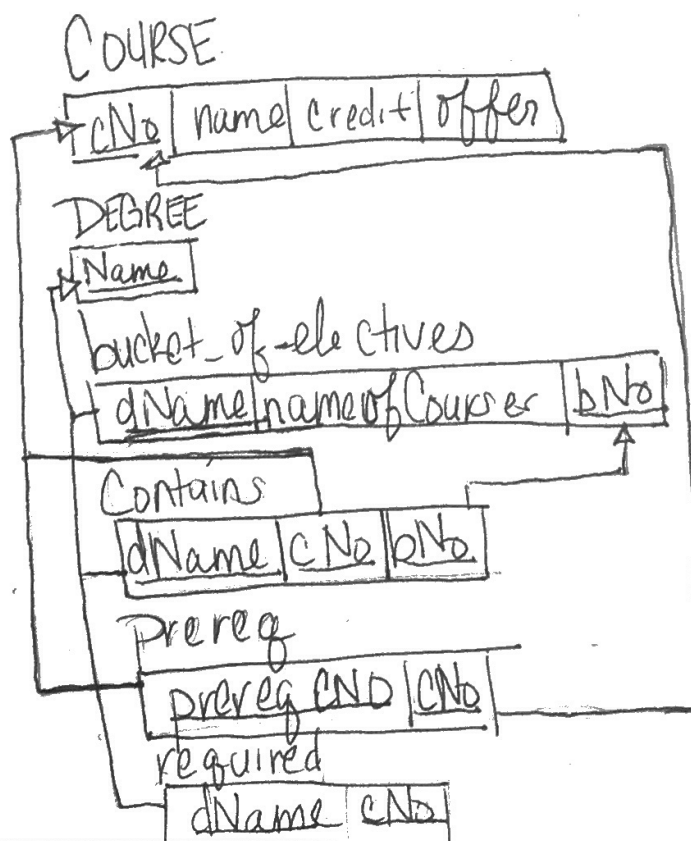 COURSE
cNo name credit offer
DEGREE
Name
bucket_of_electives
dName nameofCourses bNo
Contains
dName cNo bNo
Prereq
prereq CNO CNo
required
dName cNo